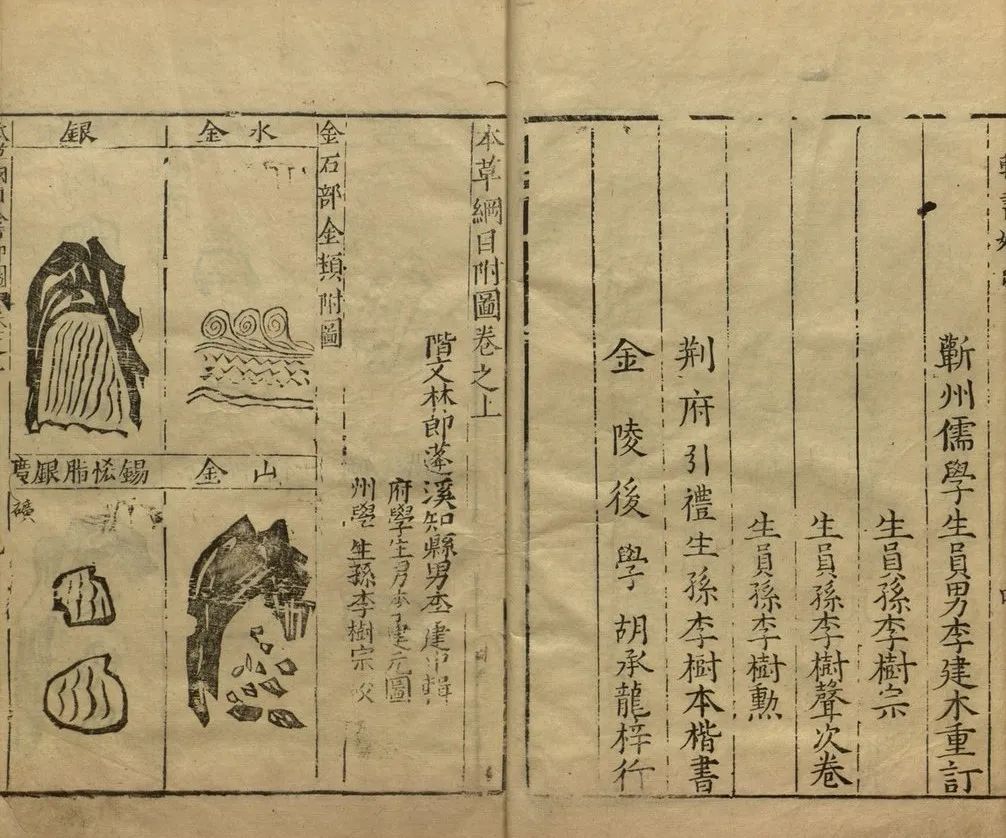 蘄州儒學生員男李建木重訂
生員孫李樹宗
生員孫李樹聲次卷
生員孫李樹勲
荆府引禮生孫李樹本楷書
金陵後學胡承龍梓行
本草綱目附圖卷之上
階文林郎蓬溪知縣男李建中輯
府學生男李建元圖
州學生孫李樹宗校
金石部金類附圖
水金
山金
銀
錫恡脂銀廣
礦